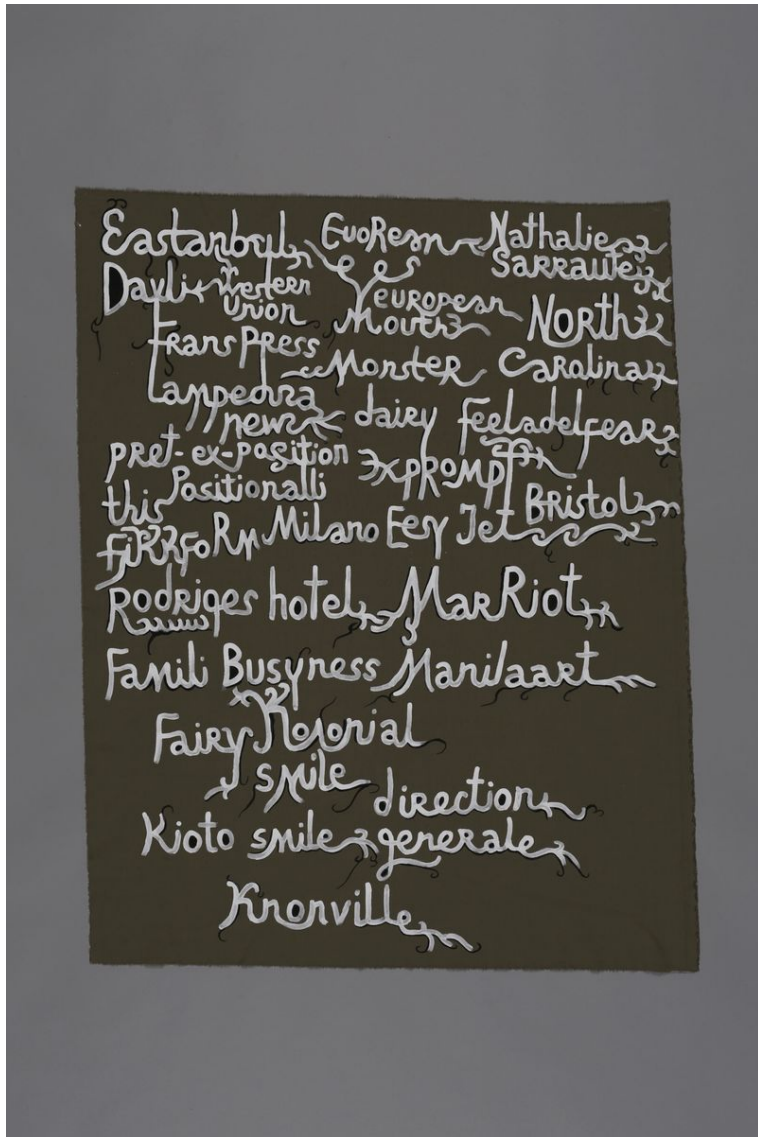 Eastanbul EuoRean Nathalie
Yes Sarraute
Davli Western european
Union Mouth North
Frans Press
Monster Carolina
news dairy feeladelfear
pret-ex-position Expromt
this Positionalli Bristol
Milano Eesy Jet
Rodriges hotel MarRiot
Famili Busyness Manilaart
Fairy Kolonial
smile direction
Kioto smile generale
Knonville